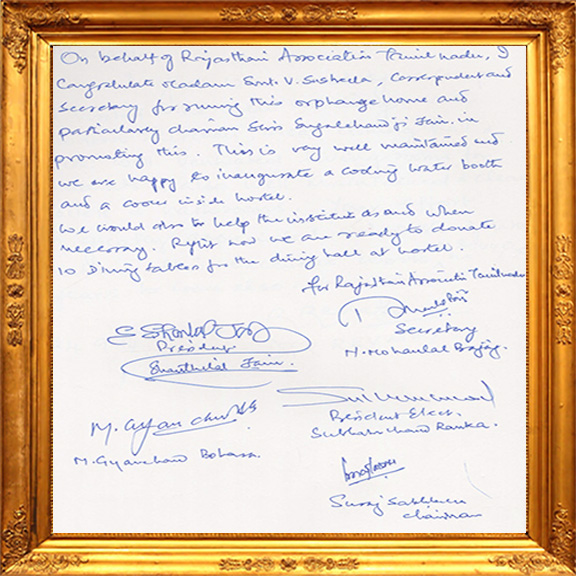 On behalf of Rajasthani Association Tamilnadu, I
Congratulate Madam Smt. V. Susheela, Correspondent and
Secretary for running this orphange home and
particularly chairman Shri Sugalchand ji Jain. in
promoting this. This is very well maintained and
we are happy to inaugurate a cooling water booth
and a cooler inside hostel.
We would also to help the institute as and when
necessary. Right now we are ready to donate
10 Dining tables for the dining hall at hostel.
for Rajasthani Association Tamilnadu
Secretary
N. Mohanlal Bajaj.
President
Shanthilal Jain.
M. Gyanchand
M. Gyanchand Bohara.
President Elect.
Subhash Chand Ranka.
Suraj
Chairman